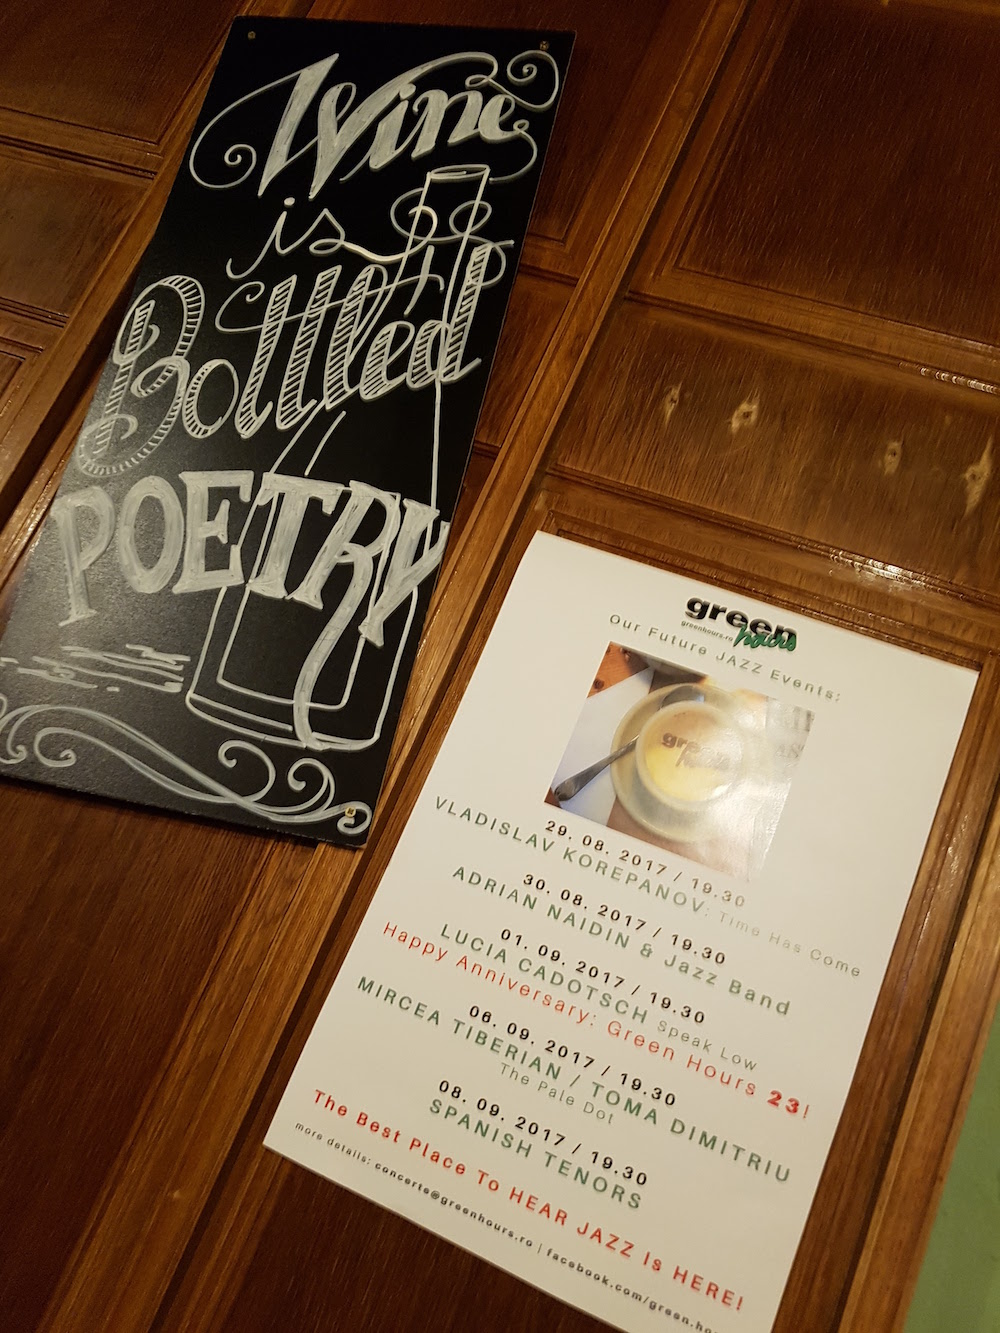 Wine
is
Bottled
POETRY
green
greenhours.ro hours
Our Future JAZZ Events:
green
hours
29. 08. 2017 / 19.30
VLADISLAV KOREPANOV: Time Has Come
30. 08. 2017 / 19.30
ADRIAN NAIDIN & Jazz Band
01. 09. 2017 / 19.30
LUCIA CADOTSCH Speak Low
Happy Anniversary: Green Hours 23!
06. 09. 2017 / 19.30
MIRCEA TIBERIAN / TOMA DIMITRIU
The Pale Dot
08. 09. 2017 / 19.30
SPANISH TENORS
The Best Place To HEAR JAZZ Is HERE!
more details: concerte@greenhours.ro | facebook.com/green.ho